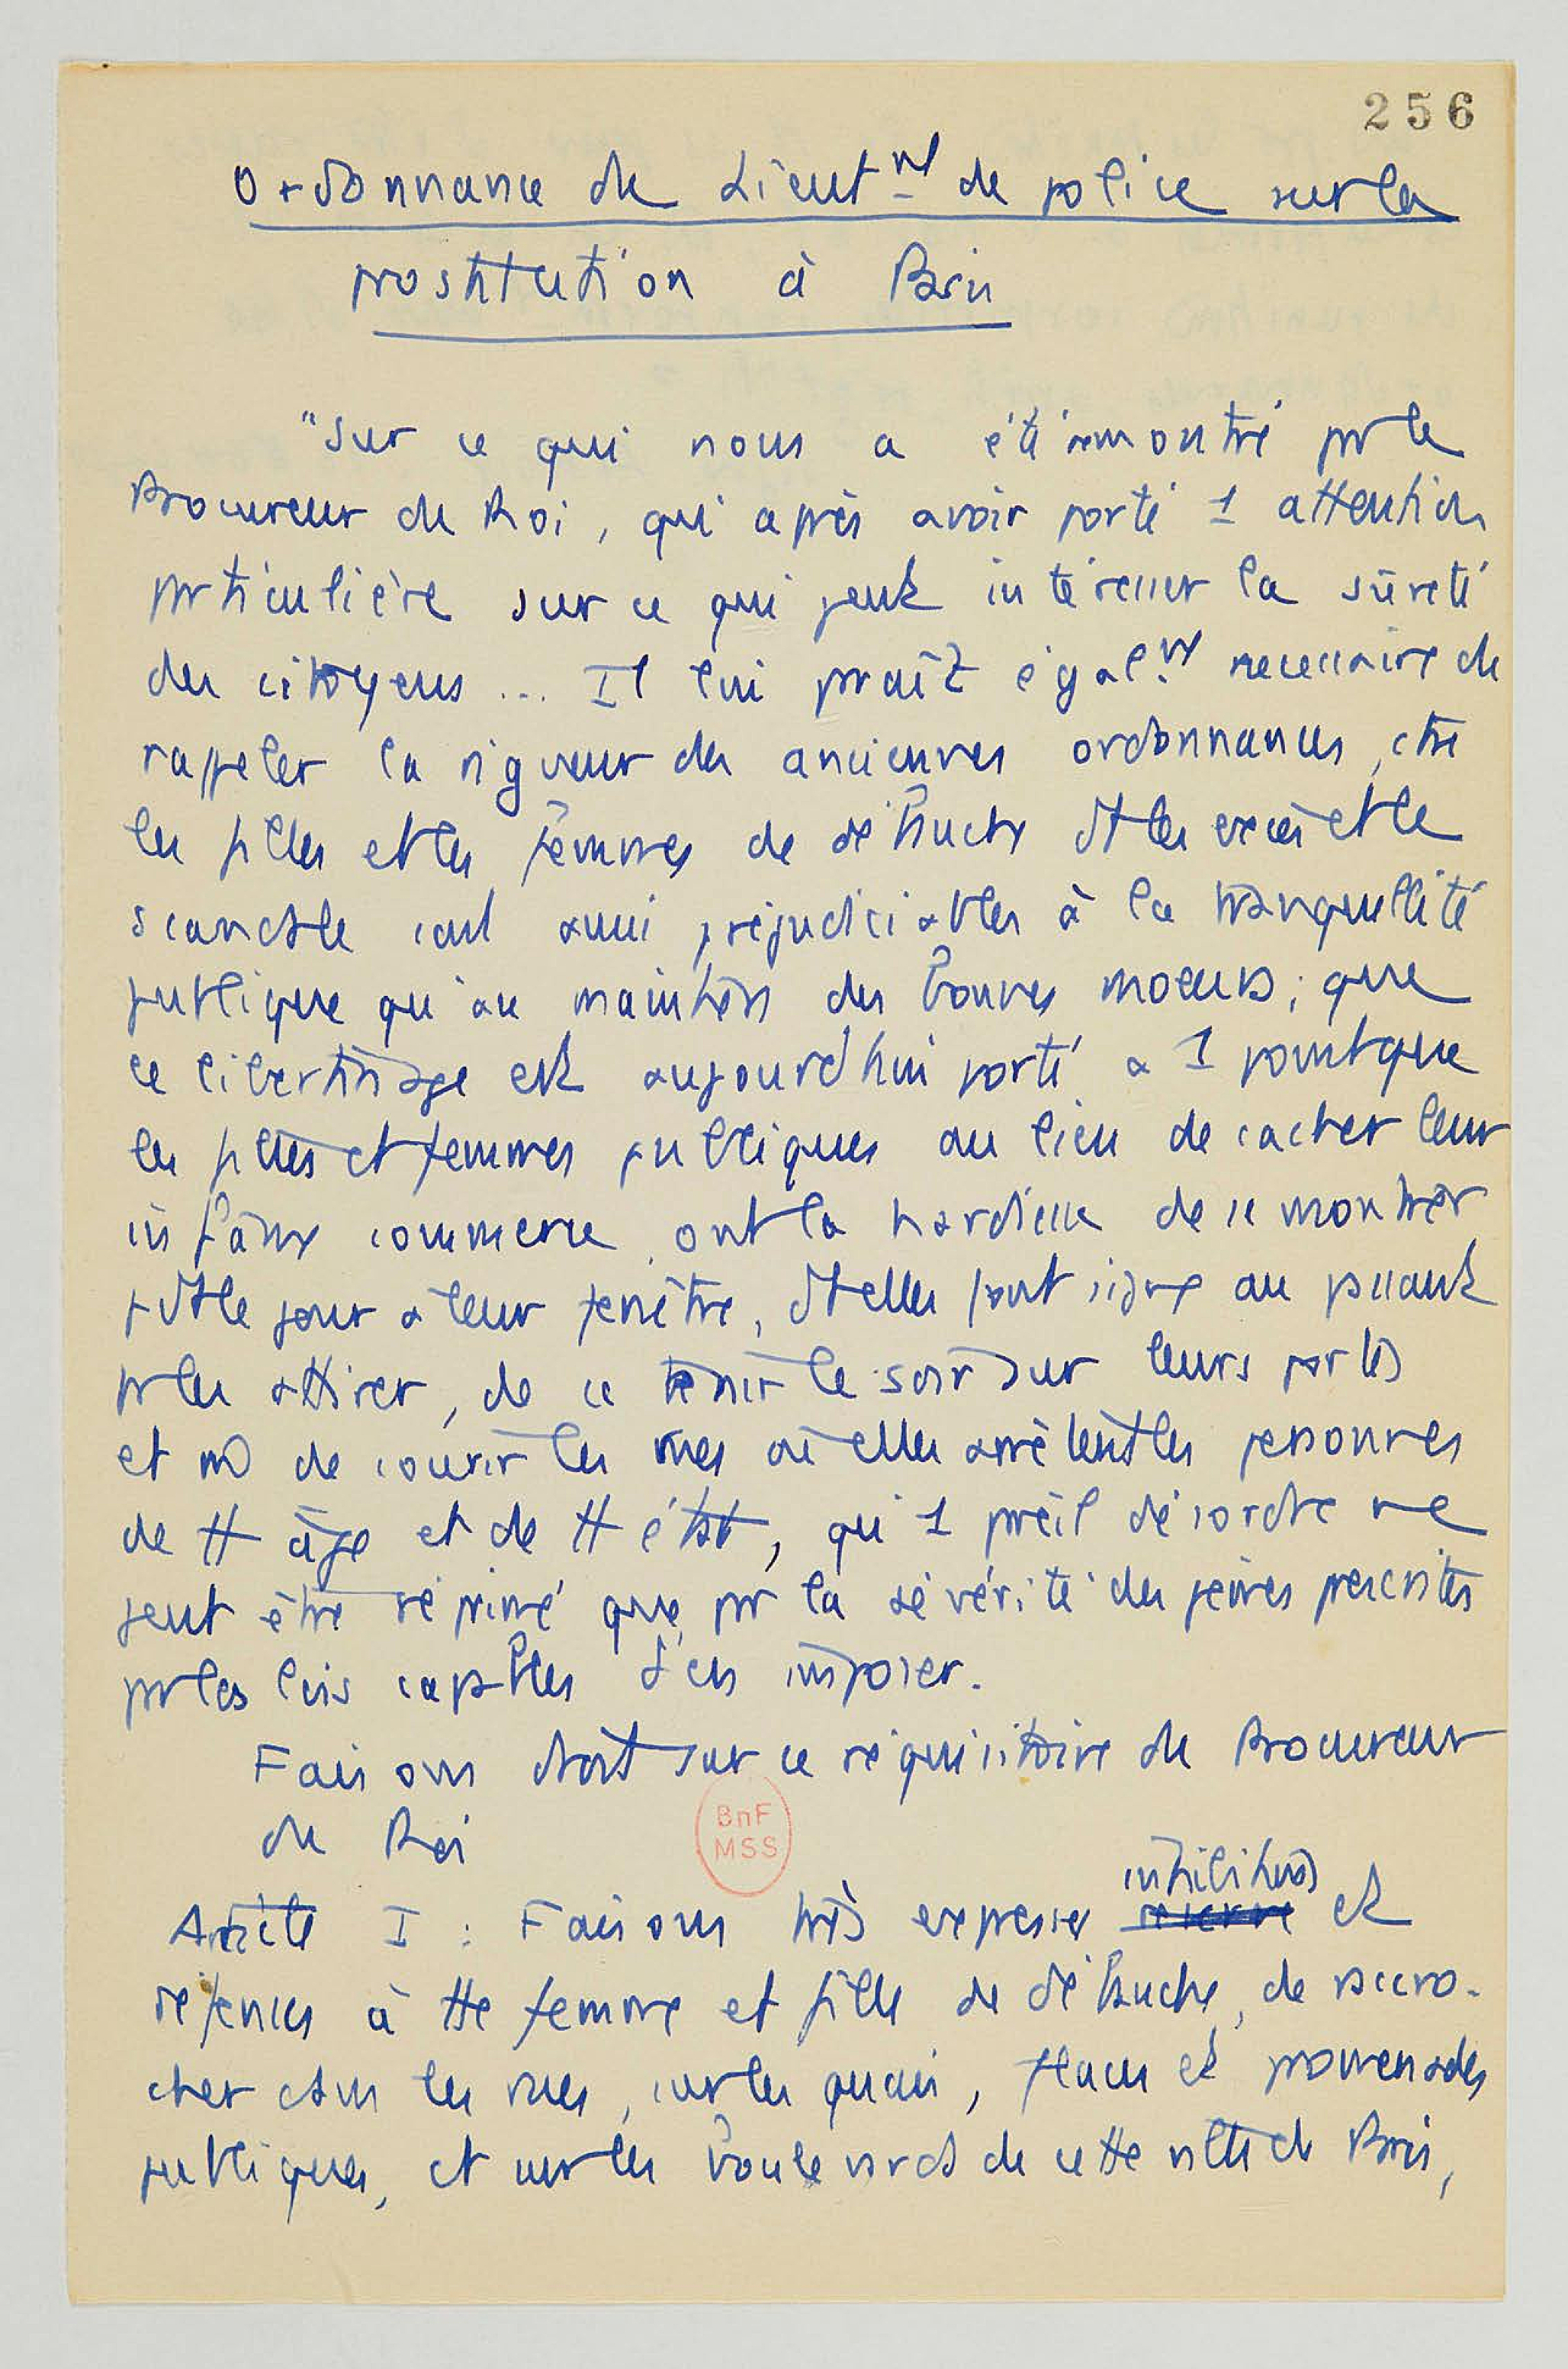 256
Ordonnance du Lieutnt de police sur la
prostitution à Paris
"Sur ce qui nous a été remontré pr le
Procureur du Roi, qui après avoir porté 1 attention
prticulière sur ce qui peut intéresser la sûreté
des citoyens ... Il lui praît égalnt necessaire de
rappeler la rigueur des anciennes ordonnances, ctre
les filles et les femmes de débauche dt les excès et le
scandale sont aussi préjudiciables à la tranquillité
publique qu'au maintien des bonnes moeurs ; que
le libertinage est aujourd'hui porté à 1 point que
les filles et femmes publiques au lieu de cacher leur
infâme commerce, ont la hardiesse de se montrer
pdt le jour à leur fenêtre, dt elles font signe au passant
pr les attirer, de se tenir le soir sur leurs portes
et m de courir les rues où elles arrêtent les personnes
de tt âge et de tt état, qu'1 preil désordre ne
peut être réprimé que pr la sévérité des peines prescrites
pr les lois capables d'en imposer.
Faisons droit sur ce réquisitoire du Procureur
du Roi
inhibitions
Article I : Faisons très expresses reserve et
défenses à tte femme et fille de débauche, de raccro-
cher dans les rues, sur les quais, places et promenades
publiques, et sur les boulevards de cette ville de Paris,
BnF
MSS